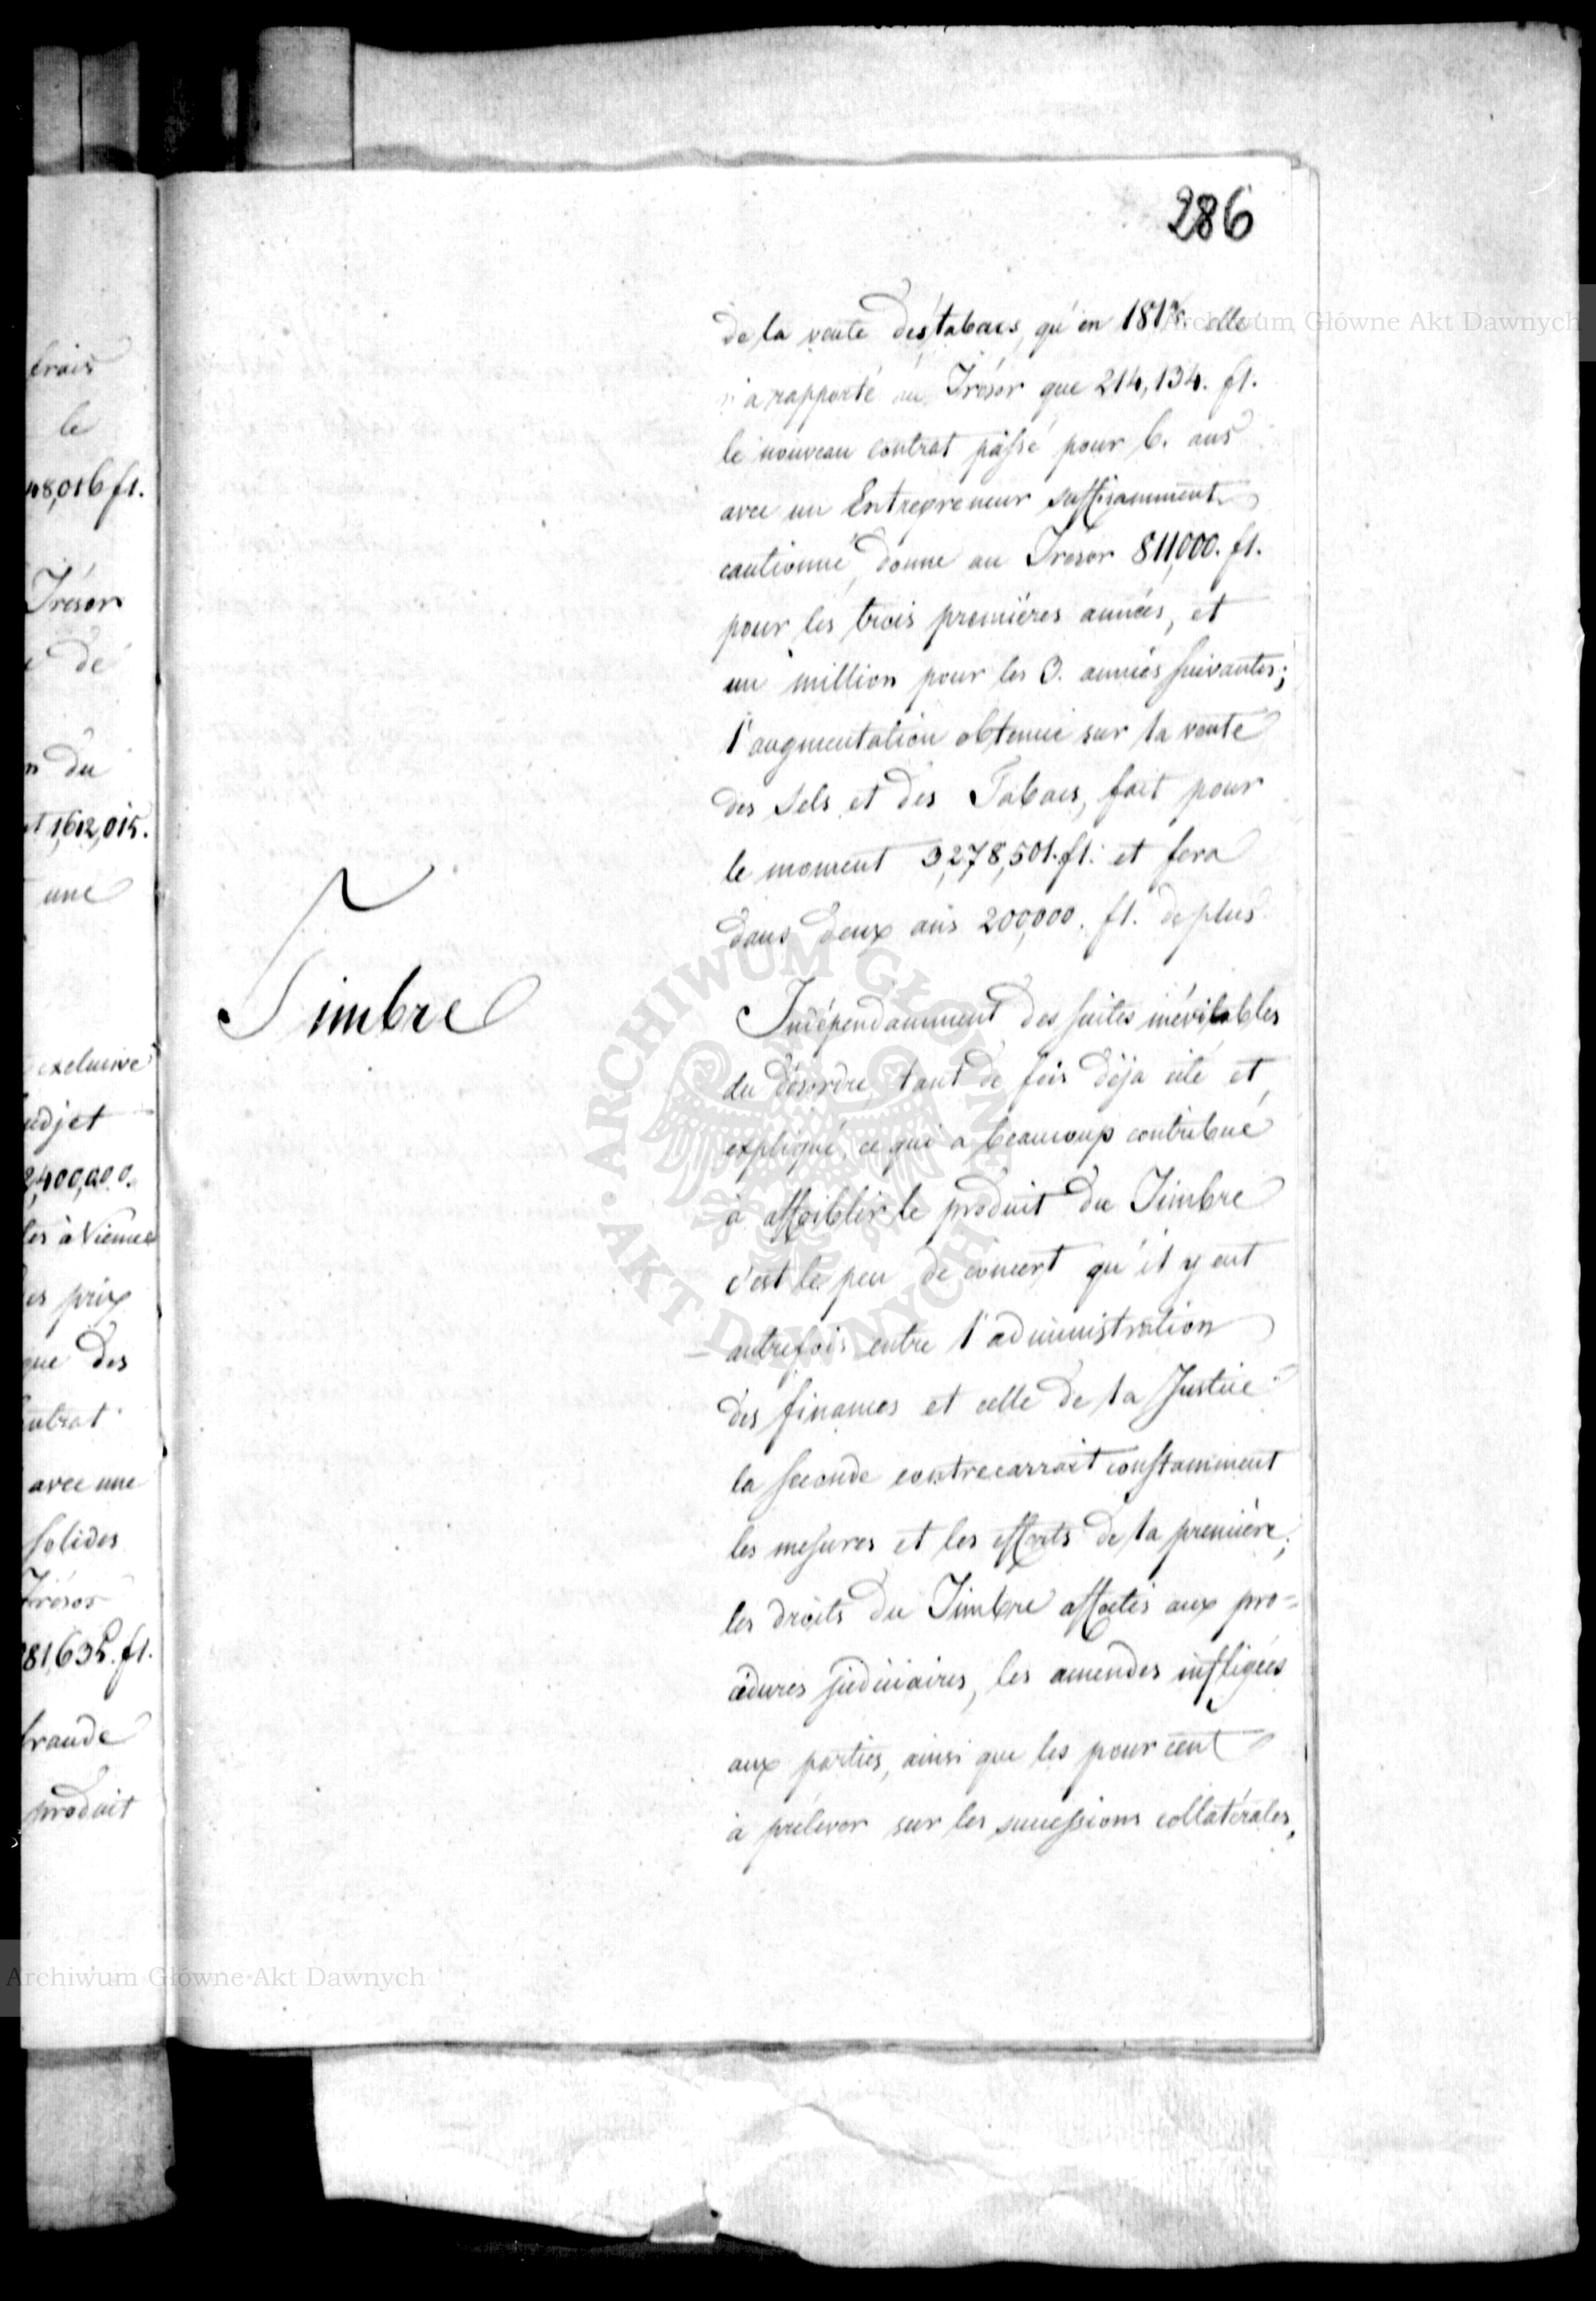 frais
le
48,016 fl.
Trésor
de
du
1,612,015.
une
exclusive
udjet
2,400,000.
les à Vienne
es prix
que des
ontrat
avec une
solides
Trésor
81,635. fl.
fraude
produit
286
de la vente des tabacs, qu'en elle
n'a rapporté au Trésor que 214,134. fl.
le nouveau contrat passé pour 6. ans
avec un Entrepreneur suffisamment
cautionné, donne au Trésor 811,000. fl.
pour les trois premières années, et
un million pour les 3. années suivantes;
l'augmentation obtenue sur la vente
des Sels et des Tabacs, fait pour
le moment 3,278,501. fl. et fera
dans deux ans 200,000. fl. de plus
Timbre
Indépendamment des suites inévitables
du désordre, tant de fois déja cité et
expliqué, ce qui a beaucoup contribué
à affoiblir le produit du Timbre
c'est le peu de concert qu'il y eut
autrefois entre l'administration
des finances et celle de la Justice
la seconde contrecarrait constamment
les mesures et les efforts de la première;
les droits du Timbre affectés aux pro=
cédures judiciaires, les amendes infligées
aux parties, ainsi que les pour cent
à prélever sur les successions collatérales,
Archiwum Główne Akt Dawnych
ARCHIWUM GŁÓWNE AKT DAWNYCH
Archiwum Główne Akt Dawnych